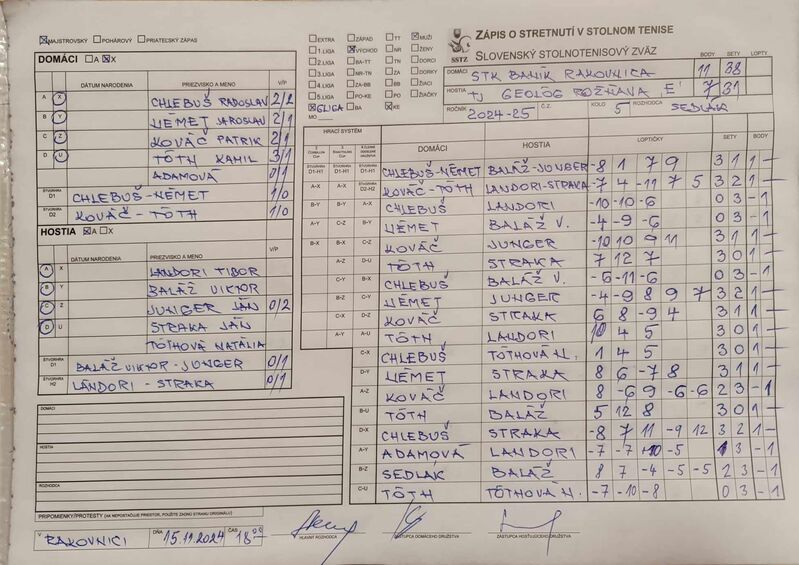 MAJSTROVSKÝ POHÁROVÝ PRIATEĽSKÝ ZÁPAS
DOMÁCI A X
DÁTUM NARODENIA PRIEZVISKO A MENO V/P
A X CHLEBUŠ RADOSLAV 2/2
B Y NÉMET JAROSLAV 2/1
C Z KOVÁČ PATRIK 2/1
D U TÓTH KAMIL 3/1
ADAMOVÁ 0/1
ŠTVORHRA D1 CHLEBUŠ-NÉMET 1/0
ŠTVORHRA D2 KOVÁČ - TÓTH 1/0
HOSTIA A X
DÁTUM NARODENIA PRIEZVISKO A MENO V/P
A X LANDORI TIBOR
B Y BALÁŽ VIKTOR
C Z JUNGER JÁN 0/2
D U STRAKA JÁN
TÓTHOVÁ NATÁLIA
ŠTVORHRA D1 BALÁŽ VIKTOR-JUNGER 0/1
ŠTVORHRA H2 LANDORI - STRAKA 0/1
DOMÁCI
HOSTIA
ROZHODCA
PRIPOMIENKY/PROTESTY (AK NEPOSTAČUJE PRIESTOR, POUŽITE ZADNÚ STRANU ORIGINÁLU)
V RAKOVNICI DŇA 15.11.2024 ČAS 18°°
HLAVNÝ ROZHODCA ZÁSTUPCA DOMÁCEHO DRUŽSTVA ZÁSTUPCA HOSŤUJÚCEHO DRUŽSTVA
EXTRA ZÁPAD TT MUŽI
1. LIGA VÝCHOD NR ŽENY
2. LIGA BA-TT TN DORCI
3. LIGA NR-TN ZA DORKY
4. LIGA ZA-BB BB ŽIACI
5. LIGA PO-KE PO ŽIAČKY
6 LIGA BA KE
MO
SSTZ
ZÁPIS O STRETNUTÍ V STOLNOM TENISE
SLOVENSKÝ STOLNOTENISOVÝ ZVÄZ
BODY SETY LOPTY
DOMÁCI STK BANÍK RAKOVNICA 11 38
HOSTIA TJ GEOLÓG ROŽŇAVA "E" 7 31
ROČNÍK 2024-25 Č.Z. KOLO 5 ROZHODCA SEDLÁK
HRACÍ SYSTÉM
DOMÁCI HOSTIA LOPTIČKY SETY BODY
D1-H1 D1-H1 D1-H1 CHLEBUŠ-NÉMET BALÁŽ-JUNGER -8 1 7 9 3 1 1 -
A-X A-X D2-H2 KOVÁČ-TÓTH LANDORI-STRAKA -7 4 -11 7 5 3 2 1 -
B-Y B-Y A-X CHLEBUŠ LANDORI -10 -10 -6 0 3 - 1
A-Y C-Z B-Y NÉMET BALÁŽ V. -4 -9 -6 0 3 - 1
B-X B-X C-Z KOVÁČ JUNGER -10 10 9 11 3 1 1 -
A-Z D-U TÓTH STRAKA 7 12 7 3 0 1 -
C-Y B-X CHLEBUŠ BALÁŽ V. -6 -11 -6 0 3 - 1
B-Z C-Y NÉMET JUNGER -4 -9 8 9 7 3 2 1 -
C-X D-Z KOVÁČ STRAKA 6 8 -9 4 3 1 1 -
A-Y A-U TÓTH LANDORI 10 4 5 3 0 1 -
C-X CHLEBUŠ TÓTHOVÁ N. 1 4 5 3 0 1 -
D-Y NÉMET STRAKA 8 6 -7 8 3 1 1 -
A-Z KOVÁČ LANDORI 8 -6 9 -6 -6 2 3 - 1
B-U TÓTH BALÁŽ 5 12 8 3 0 1 -
D-X CHLEBUŠ STRAKA -8 7 11 -9 12 3 2 1 -
A-Y ADAMOVÁ LANDORI -7 -7 10 -5 1 3 - 1
B-Z SEDLÁK BALÁŽ 8 7 -4 -5 -5 2 3 - 1
C-U TÓTH TÓTHOVÁ N. -7 -10 -8 0 3 - 1